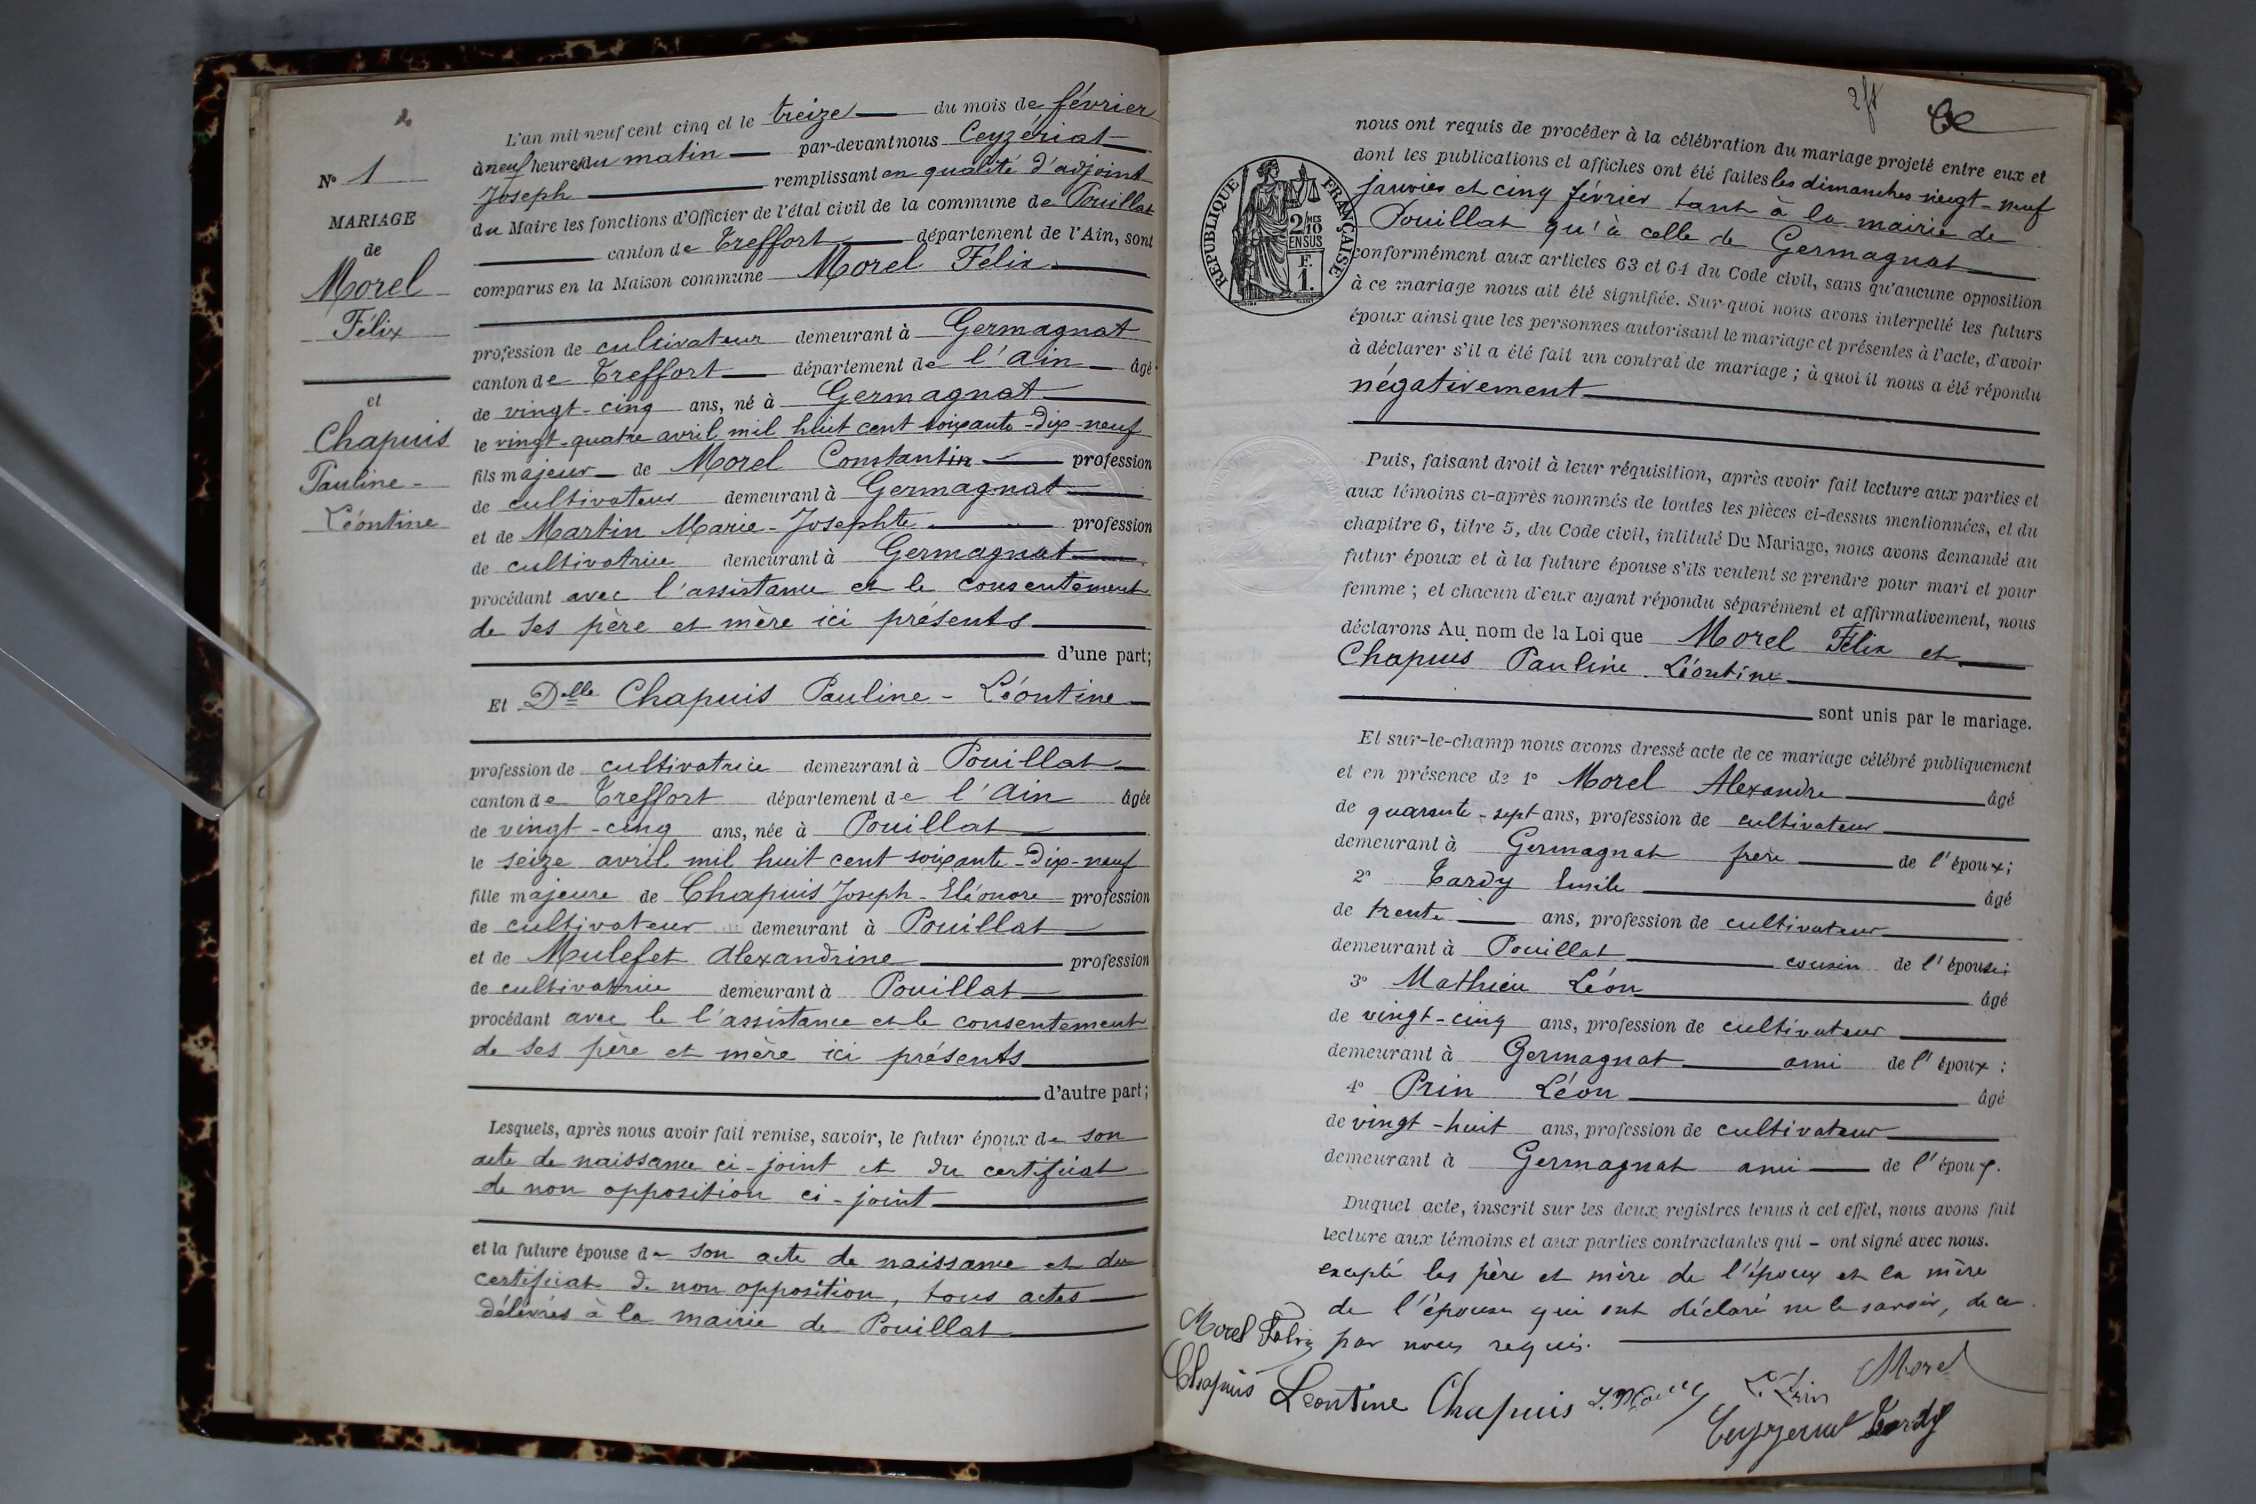 2
N° 1
MARIAGE
de
Morel
Félix
et
Chapuis
Pauline-
Léontine
L'an mil neuf cent cinq et le treize du mois de février
à neuf heures du matin par-devant nous Ceyzériat
Joseph remplissant en qualité d'adjoint
du Maire les fonctions d'Officier de l'état civil de la commune de Pouillat
canton de Treffort département de l'Ain, sont
comparus en la Maison commune Morel Félix
profession de cultivateur demeurant à Germagnat
canton de Treffort département de l'Ain âgé
de vingt-cinq ans, né à Germagnat
le vingt-quatre avril mil huit cent soixante-dix-neuf
fils majeur de Morel Constantin profession
de cultivateur demeurant à Germagnat
et de Martin Marie-Josephte profession
de cultivatrice demeurant à Germagnat
procédant avec l'assistance et le consentement
de ses père et mère ici présents
d'une part;
Et Delle Chapuis Pauline-Léontine
profession de cultivatrice demeurant à Pouillat
canton de Treffort département de l'Ain âgée
de vingt-cinq ans, née à Pouillat
le seize avril mil huit cent soixante-dix-neuf
fille majeure de Chapuis Joseph-Eléonore profession
de cultivateur demeurant à Pouillat
et de Mulefet Alexandrine profession
de cultivatrice demeurant à Pouillat
procédant avec le l'assistance et le consentement
de ses père et mère ici présents
d'autre part;
Lesquels, après nous avoir fait remise, savoir, le futur époux de son
acte de naissance ci-joint et du certificat
de non opposition ci-joint
et la future épouse de son acte de naissance et du
certificat de non opposition, tous actes
délivrés à la mairie de Pouillat
RÉPUBLIQUE FRANÇAISE
2/10 MES
EN SUS
F.
1.
nous ont requis de procéder à la célébration du mariage projeté entre eux et
dont les publications et affiches ont été faites les dimanches vingt-neuf
janvier et cinq février tant à la mairie de
Pouillat qu'à celle de Germagnat
conformément aux articles 63 et 64 du Code civil, sans qu'aucune opposition
à ce mariage nous ait été signifiée. Sur quoi nous avons interpellé les futurs
époux ainsi que les personnes autorisant le mariage et présentes à l'acte, d'avoir
à déclarer s'il a été fait un contrat de mariage; à quoi il nous a été répondu
négativement
Puis, faisant droit à leur réquisition, après avoir fait lecture aux parties et
aux témoins ci-après nommés de toutes les pièces ci-dessus mentionnées, et du
chapitre 6, titre 5, du Code civil, intitulé Du Mariage, nous avons demandé au
futur époux et à la future épouse s'ils veulent se prendre pour mari et pour
femme; et chacun d'eux ayant répondu séparément et affirmativement, nous
déclarons Au nom de la Loi que Morel Félix et
Chapuis Pauline Léontine
sont unis par le mariage.
Et sur-le-champ nous avons dressé acte de ce mariage célébré publiquement
et en présence de 1° Morel Alexandre âgé
de quarante-sept ans, profession de cultivateur
demeurant à Germagnat frère de l'époux;
2° Tardy Emile âgé
de trente ans, profession de cultivateur
demeurant à Pouillat cousin de l'épouse;
3° Mathieu Léon âgé
de vingt-cinq ans, profession de cultivateur
demeurant à Germagnat ami de l'époux:
4° Prin Léon âgé
de vingt-huit ans, profession de cultivateur
demeurant à Germagnat ami de l'époux.
Duquel acte, inscrit sur les deux registres tenus à cet effet, nous avons fait
lecture aux témoins et aux parties contractantes qui - ont signé avec nous.
excepté les père et mère de l'époux et la mère
de l'épouse qui ont déclaré ne le savoir, de ce
par nous requis.
Morel Félix
Chapuis Léontine Chapuis
L. Prin Morel
Ceyzeriat Tardy